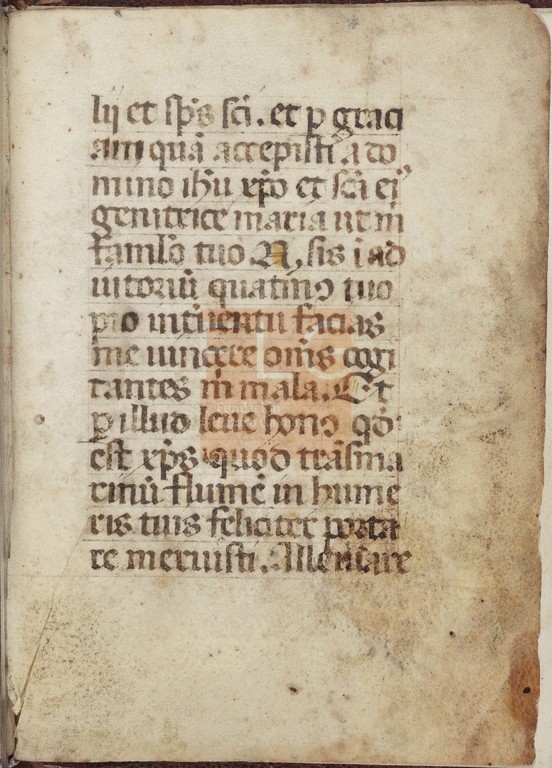 lij et sp̄s sc̄i. et ꝑ graci
am quā accepisti a do
mino ih̄u xp̄o et sc̄a eiꝰ
genitrice maria ut m̄
famło tuo N. sis ī ad
iutoriū quatinꝰ tuo
pio int̄uentu facias
me uincere om̄s cogi
tantes m̄ mala. Et
ꝑ illud leue honꝰ qd̄
est xp̄s quod trāsma
rinū flumē in hume
ris tuis feliciter porta
re meruisti. Alleuiare